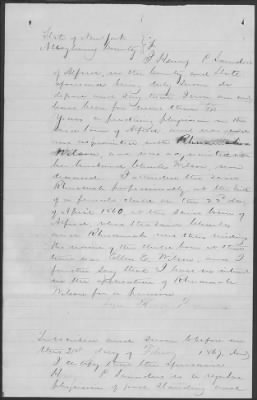 State of New York
Allegany County } SS
I Henry P Saunders
of Alfred, in the county and State
aforesaid being duly sworn do
depose and say that I am and
have been for more than
years a practicing physician in the
said town of Alfred and was
acquainted with Rhuamah
Wilson, and was acquainted with
her husband Charles Wilson
deceased I attended the said
Rhuamah professionally at the birth
of a female child on the 23d day
of April 1860, at the said town of
Alfred, when the said Charles
and Rhuamah were then residing
the name of the child born at that
time was Ellen E Wilson, and I
further say that I have no interest
in the application of Rhuamah
Wilson for a pension
Subscribed and sworn before me
this 21st day of
I certify that the
H P Saunders is a regular
physician of good standing and